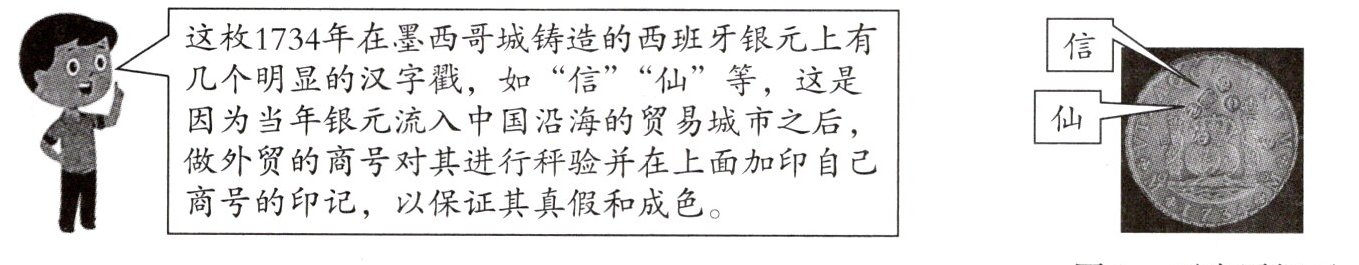 这枚1734年在墨西哥城铸造的西班牙银元上有
几个明显的汉字戳，如“信”“仙”等，这是
因为当年银元流入中国沿海的贸易城市之后，
做外贸的商号对其进行秤验并在上面加印自己
商号的印记，以保证其真假和成色。
信
仙